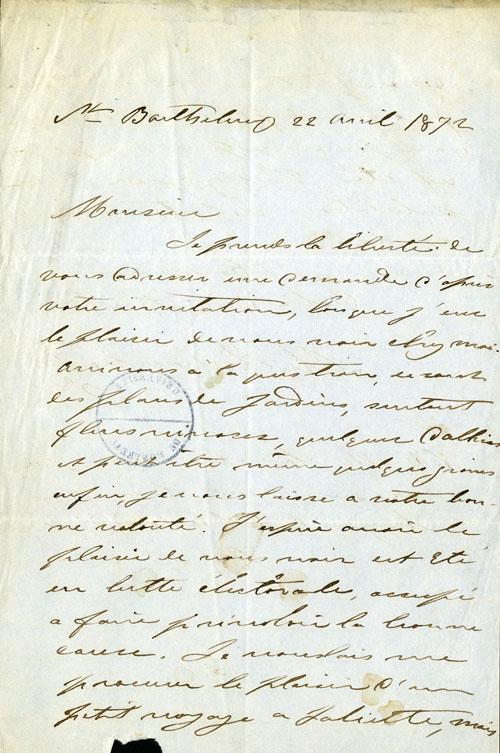 St Barthelemy 22 avril 1872
Monsieur
Je prends la liberté de
vous adresser une demande d'après
votre invitation, lorsque j'eus
le plaisir de vous voir chez moi
arrivons à la question, ce sont
des plans de Jardins, surtout
fleurs vivaces, quelques Dalhias
et peut être même quelques graines
enfin, je vous laisse a votre bon-
ne volonté. J'espère avoir le
plaisir de vous voir cet Eté
en lutte éléctorale, occupé
a faire prévaloir la bonne
cause. Je voulais me
procurer le plaisir d'un
petit voyage a Joliette, mais